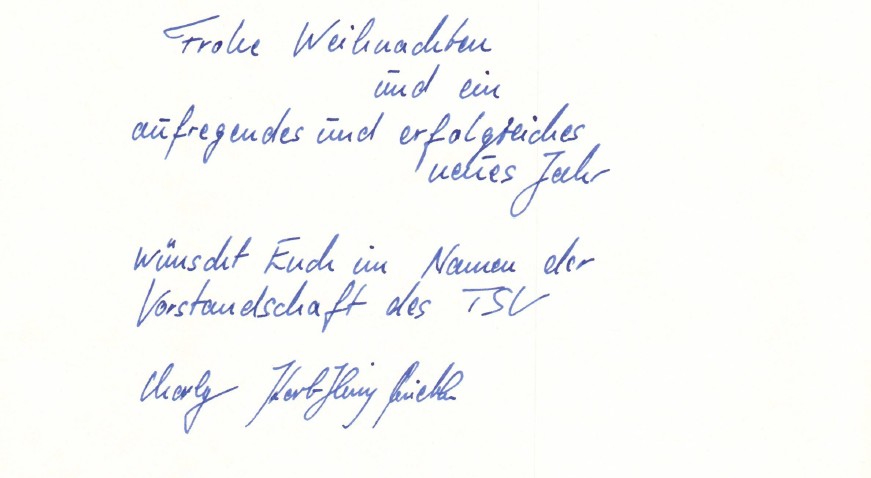 Frohe Weihnachten
und ein
aufregendes und erfolgreiches
neues Jahr
wünscht Euch im Namen der
Vorstandschaft des TSV
Charly